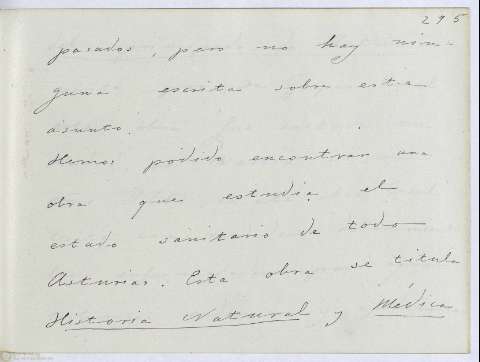 295
pasados, pero no hay nin-
guna escrita sobre este
asunto.
Hemos podido encontrar una
obra que estudia el
estado sanitario de todo
Asturias. Esta obra se titula
Historia Natural y Médica